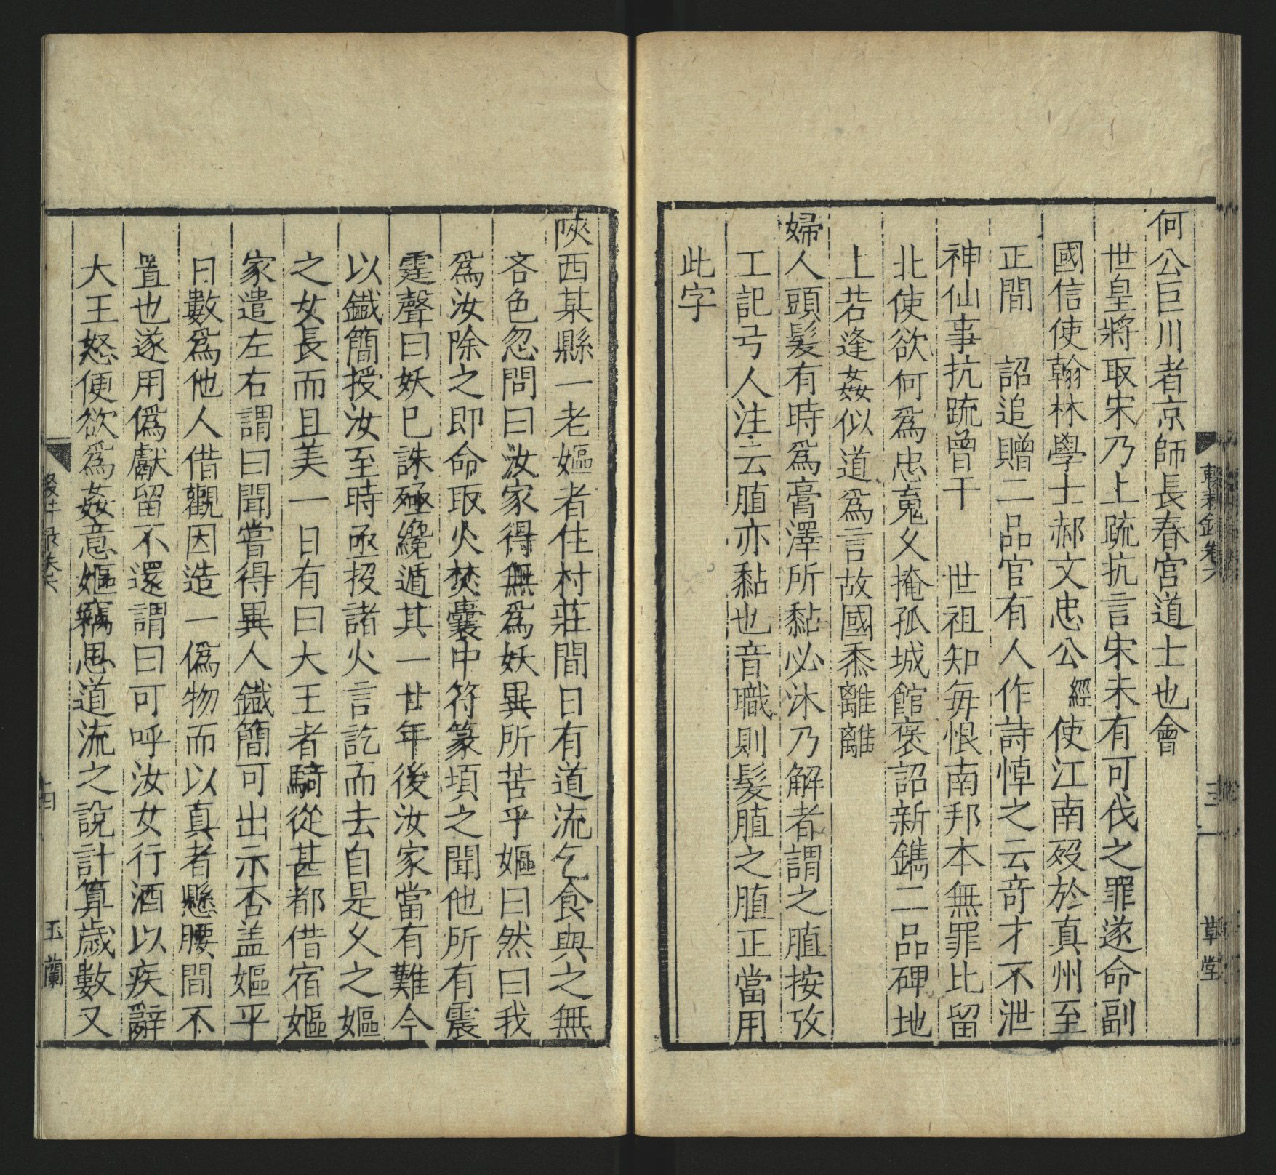 何公巨川者京師長春宮道士也會
世皇將取宋乃上疏抗言宋未有可伐之罪遂命副
國信使翰林學士郝文忠公經使江南歿於真州至
正間 詔追贈二品官有人作詩悼之云奇才不泄
神仙事抗疏曾干 世祖知毎恨南邦本無罪比留
北使欲何爲忠䰟乆掩孤城館褒詔新鐫二品碑地
上若逢姦似道爲言故國黍離離
婦人頭髮有時爲膏澤所黏必沐乃解者謂之䐈按攷
工記弓人注云䐈亦黏也音職則髮䐈之䐈正當用
此字
輟耕錄卷六
草堂
陝西某縣一老嫗者住村莊間日有道流乞食與之無
吝色忽問曰汝家得無爲妖異所苦乎嫗曰然曰我
爲汝除之即命取火焚囊中符篆頃之聞他所有震
霆聲曰妖巳誅殛纔遁其一廿年後汝家當有難今
以鐵簡授汝至時亟投諸火言訖而去自是乆之嫗
之女長而且美一日有曰大王者騎從甚都借宿嫗
家遣左右謂曰聞嘗得異人鐵簡可出示否盖嫗平
日數爲他人借觀因造一僞物而以真者懸腰間不
置也遂用僞獻留不還謂曰可呼汝女行酒以疾辭
大王怒便欲爲姦意嫗竊思道流之說計算歲數又
輟耕錄卷六
十四
玉蘭